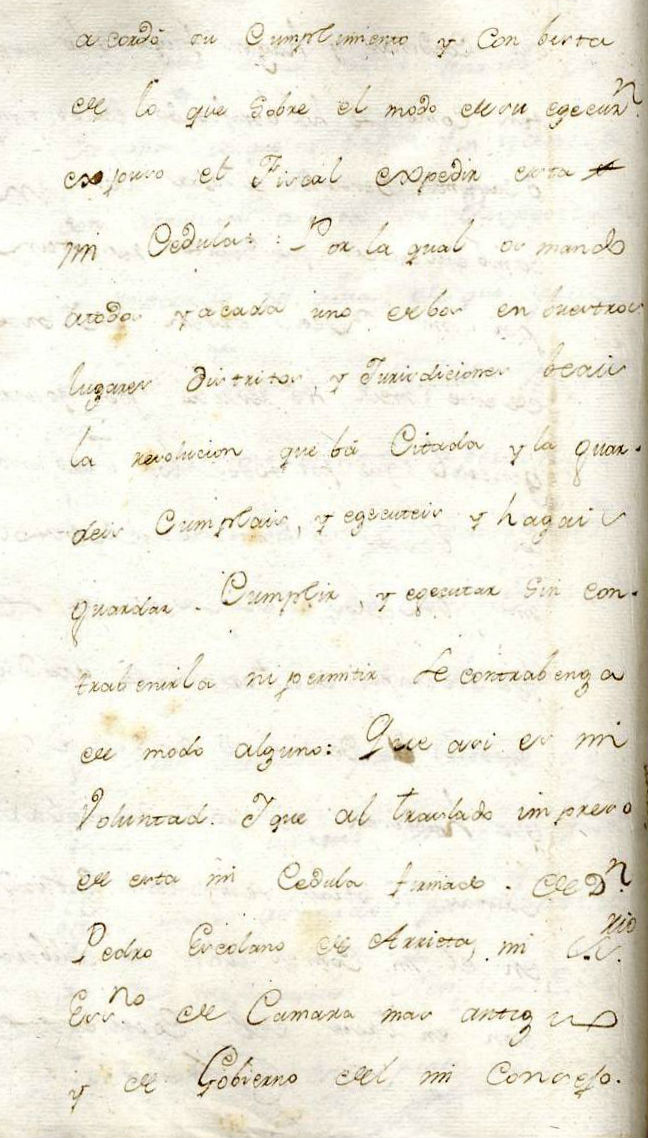 acordó su Cumplimiento y Con bista
de lo que Sobre el modo de su egecun.
expuso el Fiscal expedir esta
mi Cedula: Por la qual os mando
atodos y acada uno de bos en buestros
lugares distritos, y Jurisdiciones beais
la resolucion que bá Citada y la guar-
deis Cumplais, y egecuteis y hagais
guardar. Cumplir, y egecutar Sin con-
trabenirla ni permitir se contrabenga
de modo alguno: Que asi es mi
Voluntad. Y que al traslado impreso
de esta mi Cedula firmado. de Dn.
Pedro Escolano de Arrieta, mi Srio.
Essno. de Camara mas antiguo
y de Gobierno del mi Consejo.